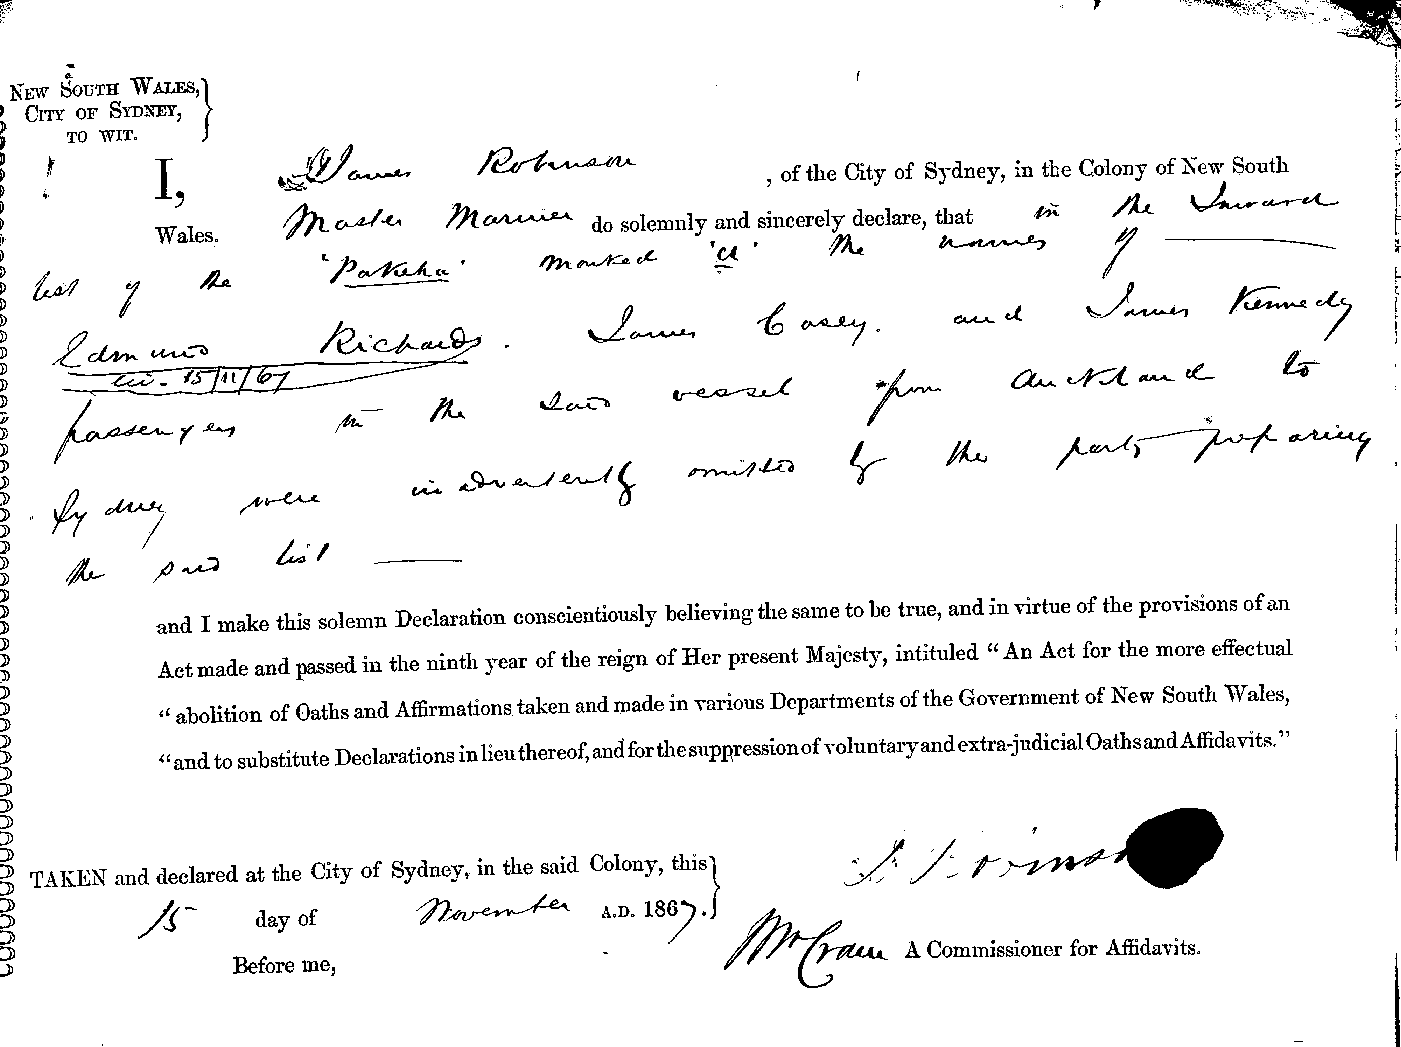 NEW SOUTH WALES,
CITY OF SYDNEY,
TO WIT.
I, James Robinson, of the City of Sydney, in the Colony of New South
Wales. Master Mariner do solemnly and sincerely declare, that in the Inward
list of the 'Pakeha' marked 'a' the names of
Edmund Richards. James Casey. and James Kennedy
15/11/67
passengers in the said vessel from Auckland to
Sydney were inadvertently omitted by the party preparing
the said list
and I make this solemn Declaration conscientiously believing the same to be true, and in virtue of the provisions of an
Act made and passed in the ninth year of the reign of Her present Majesty, intituled "An Act for the more effectual
"abolition of Oaths and Affirmations taken and made in various Departments of the Government of New South Wales,
"and to substitute Declarations in lieu thereof, and for the suppression of voluntary and extra-judicial Oaths and Affidavits."
TAKEN and declared at the City of Sydney, in the said Colony, this
15 day of November A.D. 1867.
Before me,
A Commissioner for Affidavits.